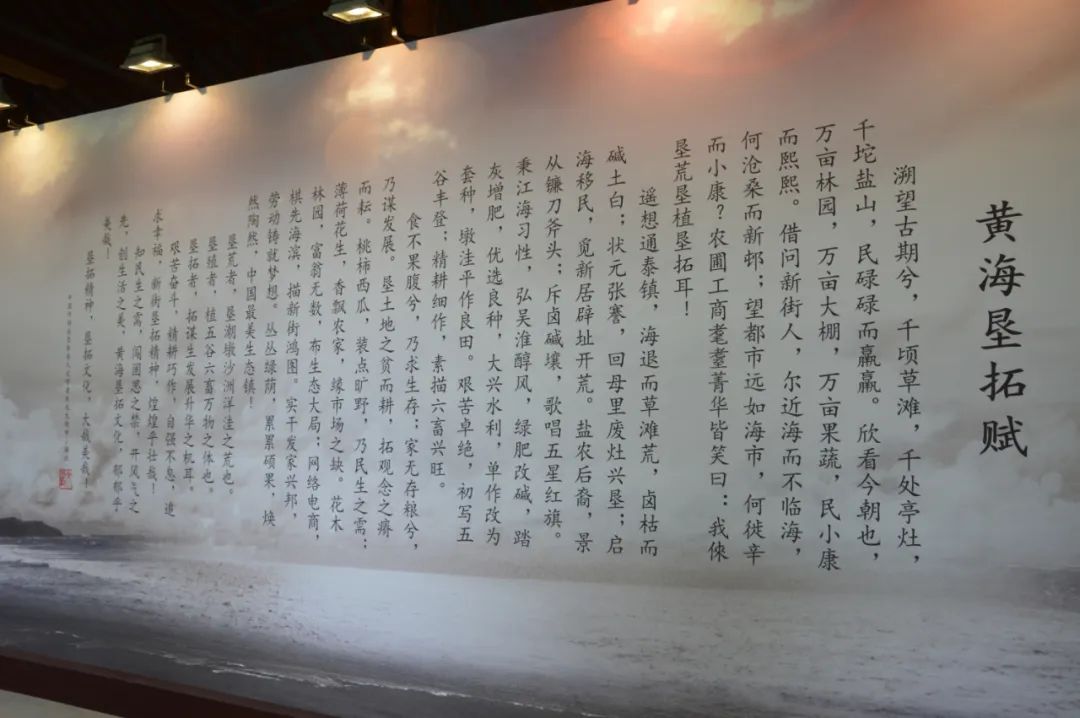 黄海垦拓赋
溯望古期兮，千顷草滩，千处亭灶，
千坨盐山，民碌碌而赢赢。欣看今朝也，
万亩林园，万亩大棚，万亩果蔬，民小康
而熙熙。借问新街人，尔近海而不临海，
何沧桑而新邨；望都市远如海市，何徙辛
而小康？农圃工商耄耋菁华皆笑曰：我倈
垦荒垦植垦拓耳！
遥想通泰镇，海退而草滩荒，卤枯而
碱土白；状元张謇，回母里废灶兴垦；启
海移民，觅新居辟址开荒。盐农后裔，景
从镰刀斧头；斥卤碱壤，歌唱五星红旗。
秉江海习性，弘吴淮醇风，绿肥改碱，踏
灰增肥，优选良种，大兴水利，单作改为
套种，墩洼平作良田。艰苦卓绝，初写五
谷丰登；精耕细作，素描六畜兴旺。
食不果腹兮，乃求生存；家无存粮兮，
乃谋发展。垦土地之贫而耕，拓观念之瘠
而耘。桃柿西瓜，装点旷野，乃民生之需；
薄荷花生，香飘农家，缘市场之缺。花木
林园，富翁无数，布生态大局；网络电商，
棋先海滨，描新街鸿图。实干发家兴邦，
劳动铸就梦想。丛丛绿荫，累累硕果，焕
然陶然，中国最美生态镇！
垦荒者，垦潮墩沙洲洋洼之荒也。
垦殖者，植五谷六畜万物之体也。
垦拓者，拓谋生发展升华之机耳。
艰苦奋斗，精耕巧作，自强不息，追
求幸福，新街垦拓精神，煌煌乎壮哉！
知民生之需，闯固思之禁，开风气之
先，创生活之美，黄海垦拓文化，郁郁乎
美哉！
垦拓精神，垦拓文化，大哉美哉！